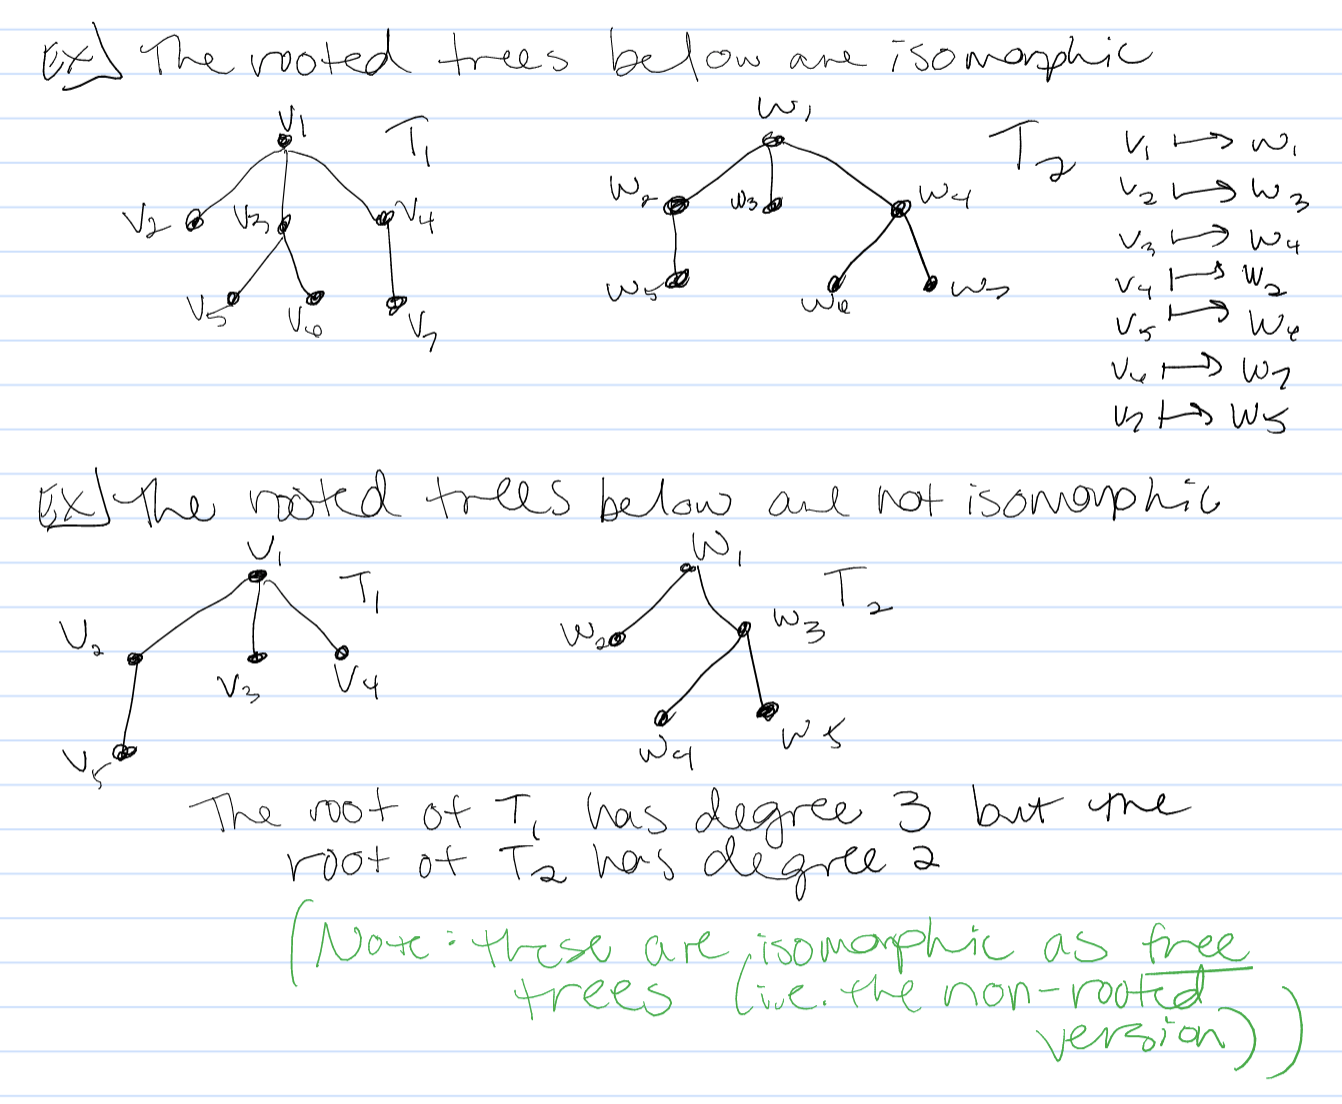 Ex) The rooted trees below are isomorphic
V1 T1
V2 V3 V4
V5 V6 V7
W1 T2
W2 W3 W4
W5 W6 W7
V1 ↦ W1
V2 ↦ W3
V3 ↦ W4
V4 ↦ W2
V5 ↦ W6
V6 ↦ W7
V7 ↦ W5
Ex) The rooted trees below are not isomorphic
V1 T1
V2 V3 V4
V5
W1 T2
W2 W3
W4 W5
The root of T1 has degree 3 but the
root of T2 has degree 2
(Note: these are isomorphic as free
trees (i.e. the non-rooted
version))